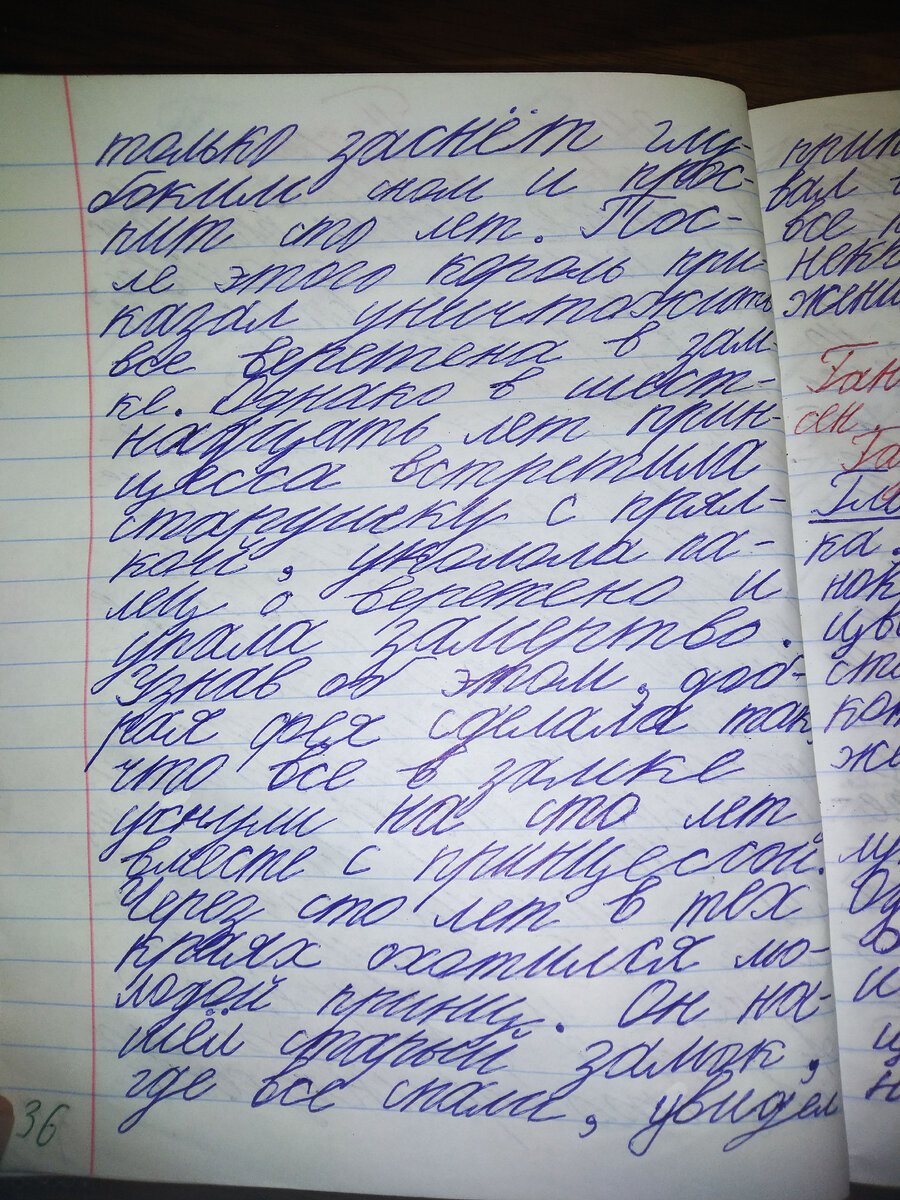 только заснёт глу-
боким сном и прос-
пит сто лет. Пос-
ле этого король при-
казал уничтожить
все веретена в зам-
ке. Однако в шест-
надцать лет прин-
цесса встретила
старушку с прял-
кой, уколола па-
лец о веретено и
упала замертво.
Узнав об этом, доб-
рая фея сделала так,
что все в замке
уснули на сто лет
вместе с принцессой.
Через сто лет в тех
краях охотился мо-
лодой принц. Он на-
шёл старый замок,
где все спали, увидел
36
прин
вал
все
неко
жени
Ган
сен.
Га
Гла
ка.
нок
цве
ст
кот
же
лу
Од